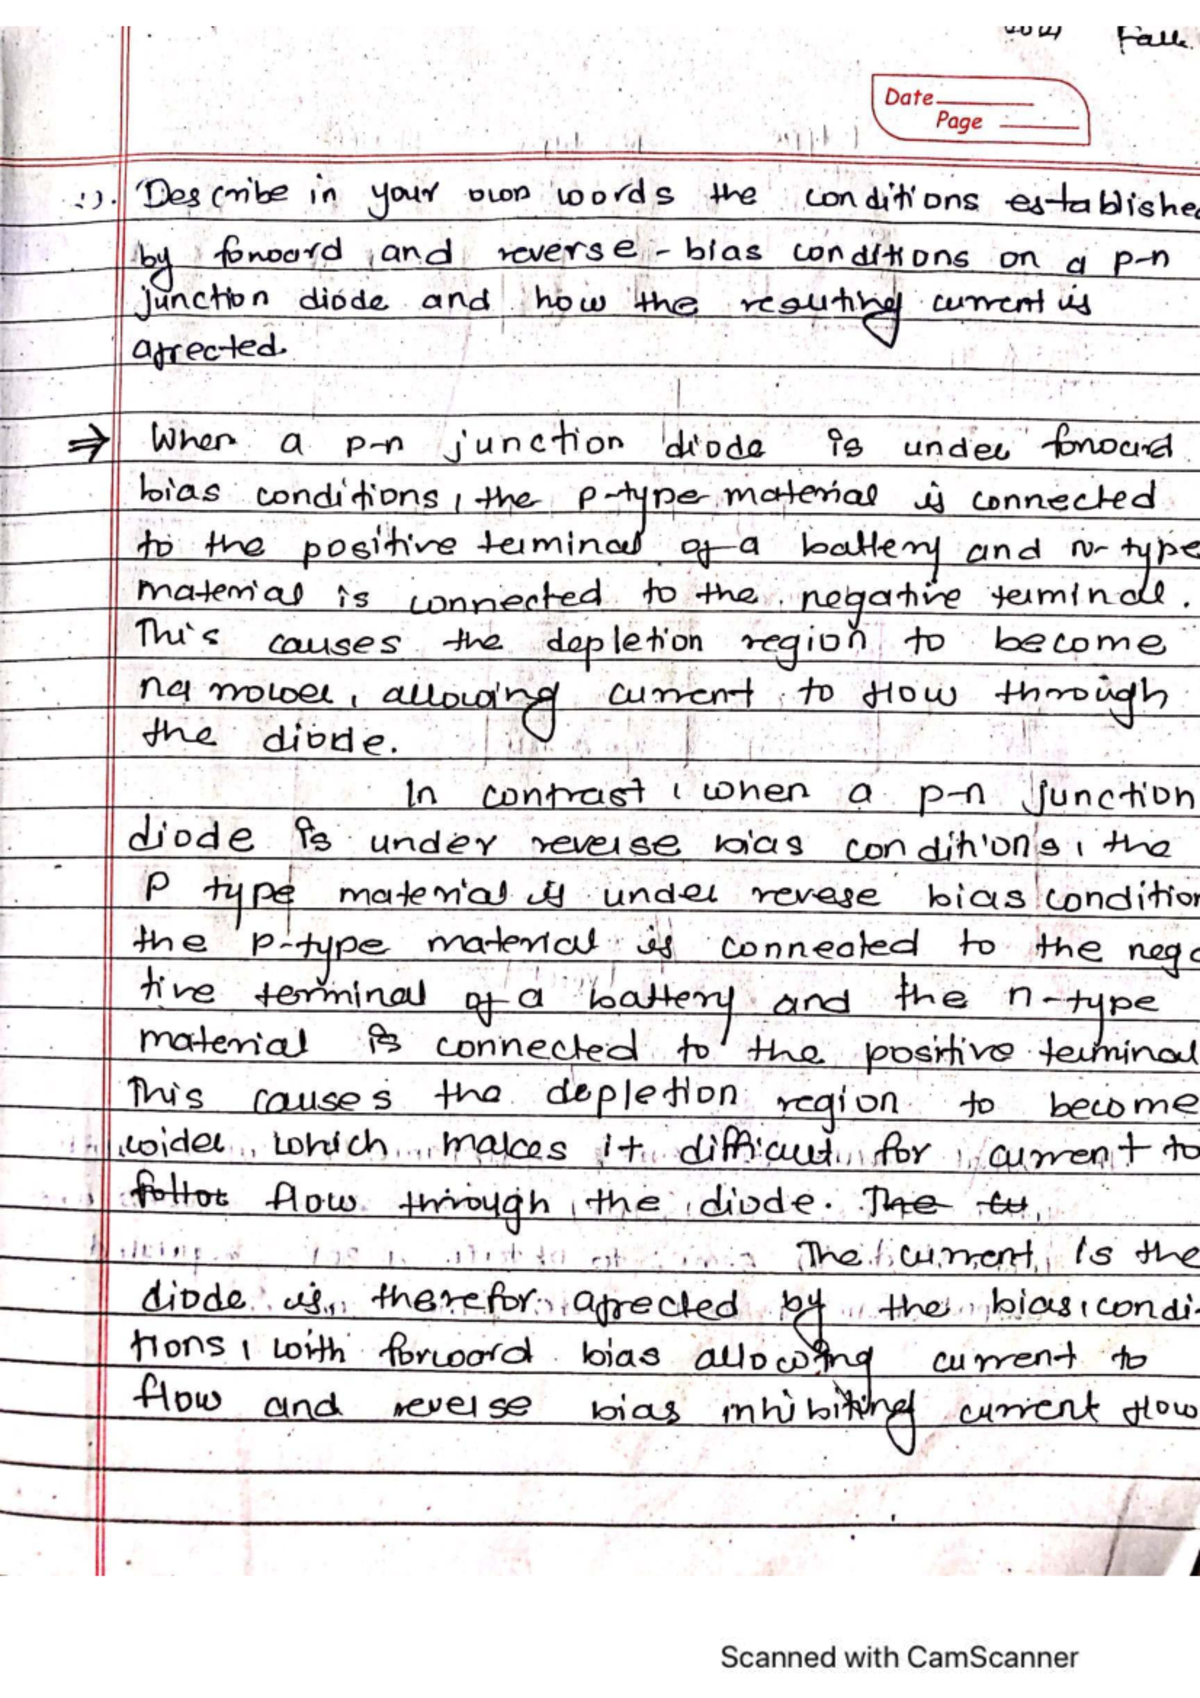 Fall
Date
Page
1). Describe in your own words the conditions establishe
by forward and reverse - bias conditions on a p-n
junction diode and how the resulting current is
affected.
⇒ When a p-n junction diode is under forward
bias conditions, the p-type material is connected
to the positive terminal of a battery and n-type
material is connected to the negative terminal.
This causes the depletion region to become
narrower, allowing current to flow through
the diode.
In contrast, when a p-n junction
diode is under reverse bias conditions, the
P type material is under revese bias condition
the p-type material is connected to the nega
tive terminal of a battery and the n-type
material is connected to the positive terminal
This causes the depletion region to become
wider, which makes it difficult for current to
flow through the diode. The
The current is the
diode is therefor affected by the bias condi-
tions, with forward bias allowing current to
flow and reverse bias inhibiting current flow
Scanned with CamScanner